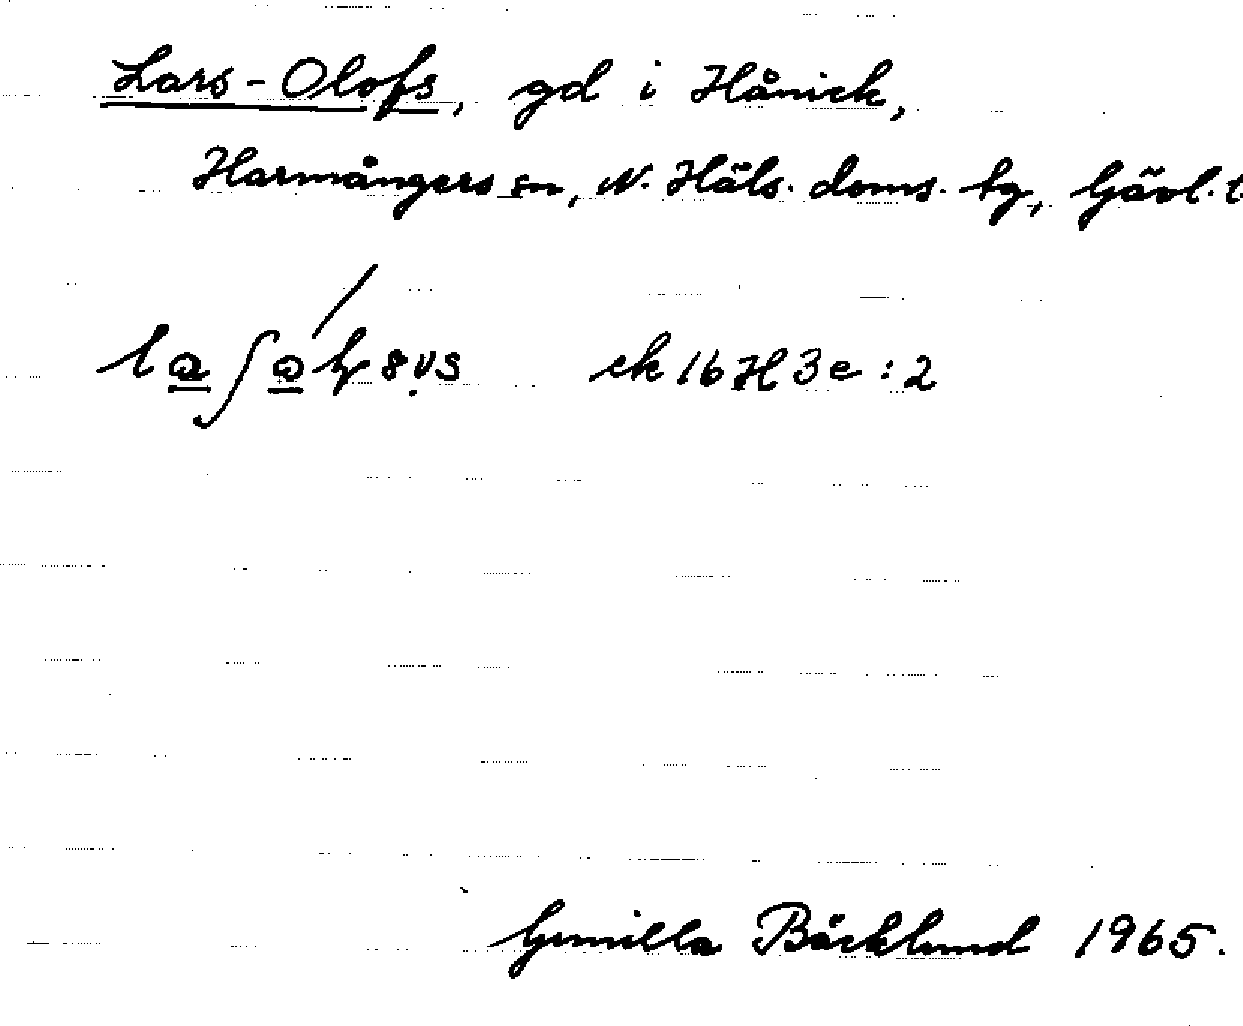 Lars-Olofs, gd i Hånick,
Harmångers sn, N. Häls. doms. tg, Gävl. t
ek 16 H 3 e : 2
Gunilla Bäcklund 1965.